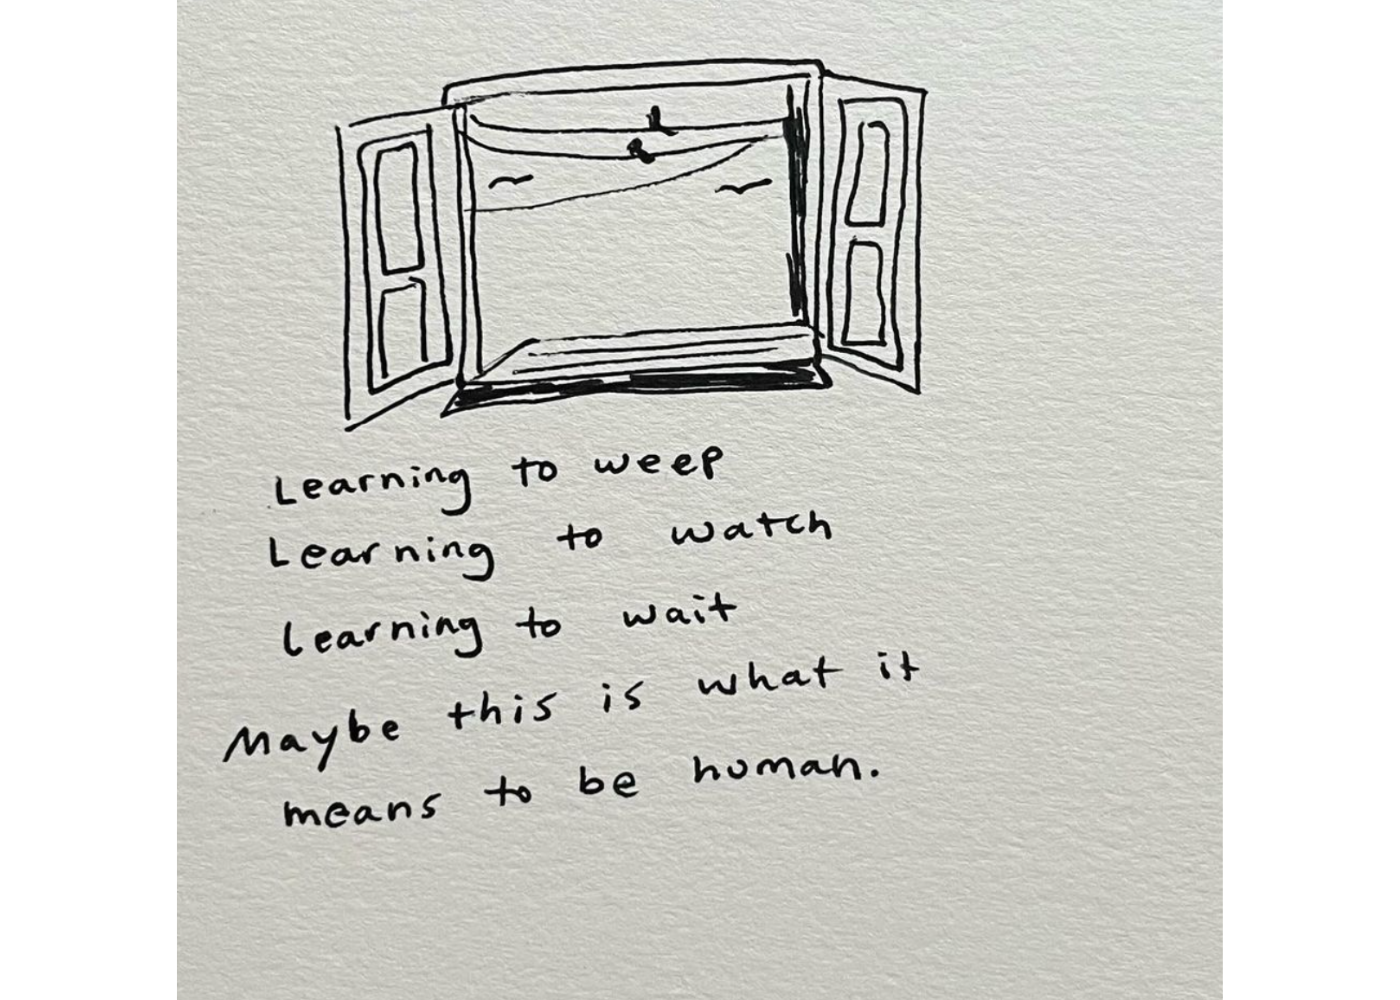 Learning to weep
Learning to watch
Learning to wait
Maybe this is what it
means to be human.